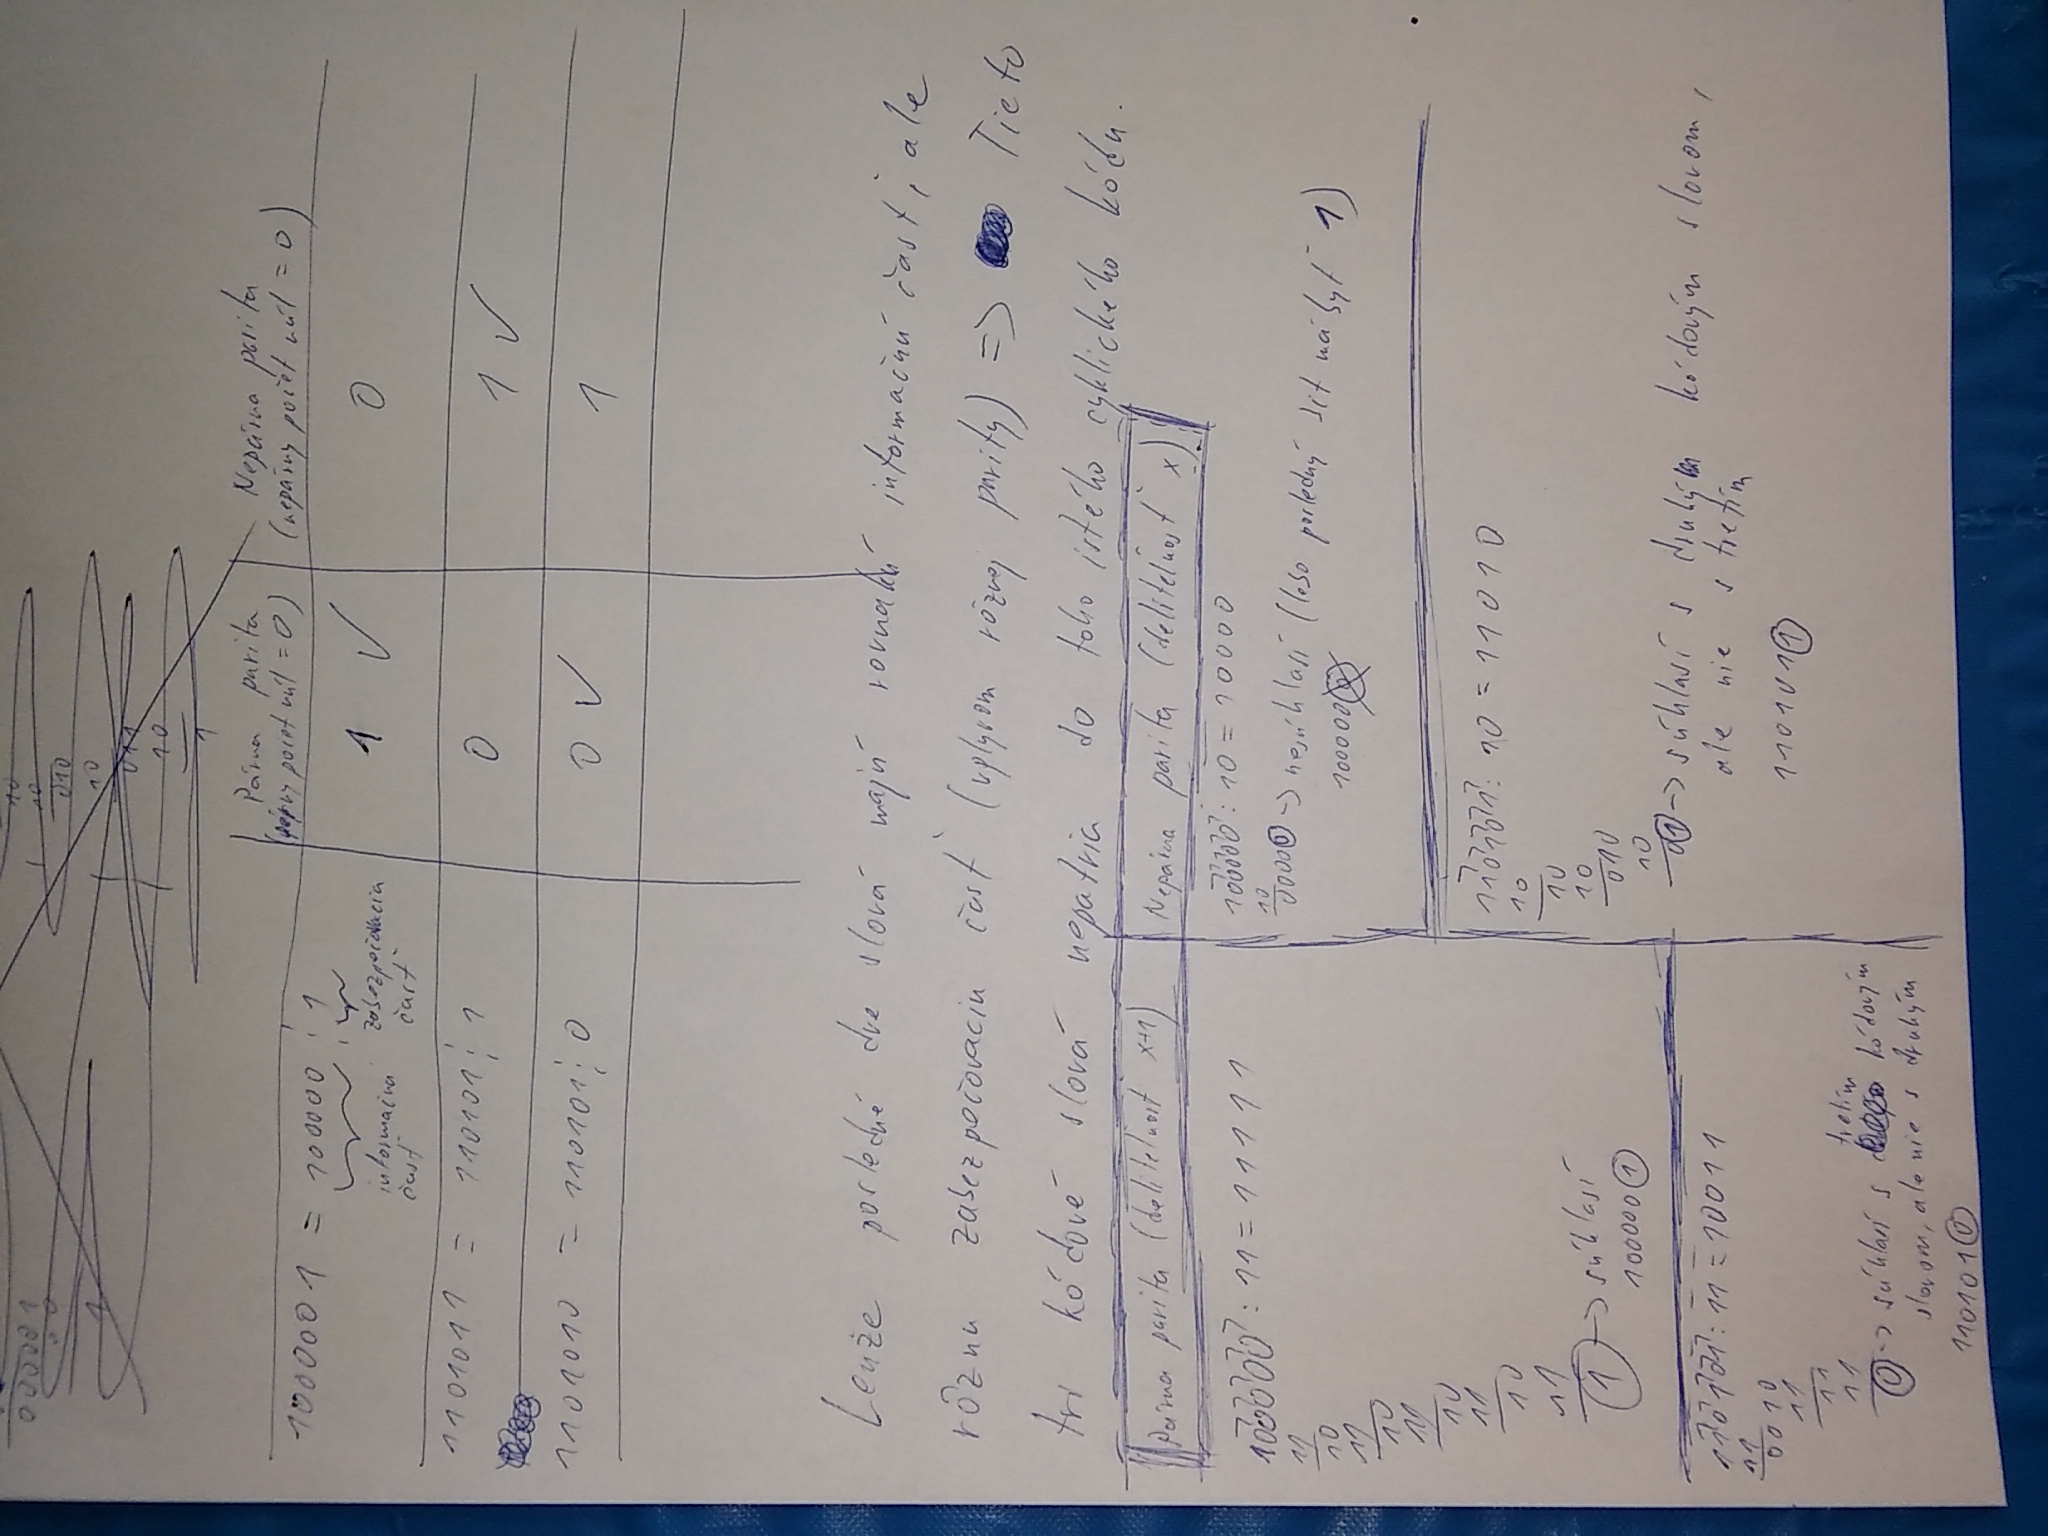 000001
0
1
10
10
010
10
011
10
1
Párna parita
(párny počet núl = 0)
Nepárna parita
(nepárny počet núl = 0)
1000001 = 100000 ¦ 1
informačná
časť
zabezpečovacia
časť
1 ✓
0
1101011 = 110101 ¦ 1
0
1 ✓
1101010 = 110101 ¦ 0
0 ✓
1
Lenže posledné dve slová majú rovnakú informačnú časť, ale
rôznu zabezpečovaciu časť (vplyvom rôznej parity) => Tieto
tri kódové slová nepatria do toho istého cyklického kódu.
Párna parita (deliteľnosť x+1)
100000 : 11 = 11111
11
10
11
10
11
10
11
10
11
1 -> súhlasí
100000 1
110101 : 11 = 10011
11
0010
11
11
11
tretím
0 -> súhlasí s kódovým
slovom, ale nie s druhým
110101 0
Nepárna parita (deliteľnosť x)
100000 : 10 = 10000
10
00000 -> nesúhlasí (lebo posledný bit má byť 1)
100000 0
110101 : 10 = 11010
10
10
10
010
10
01 -> súhlasí s druhým kódovým slovom,
ale nie s tretím
110101 1